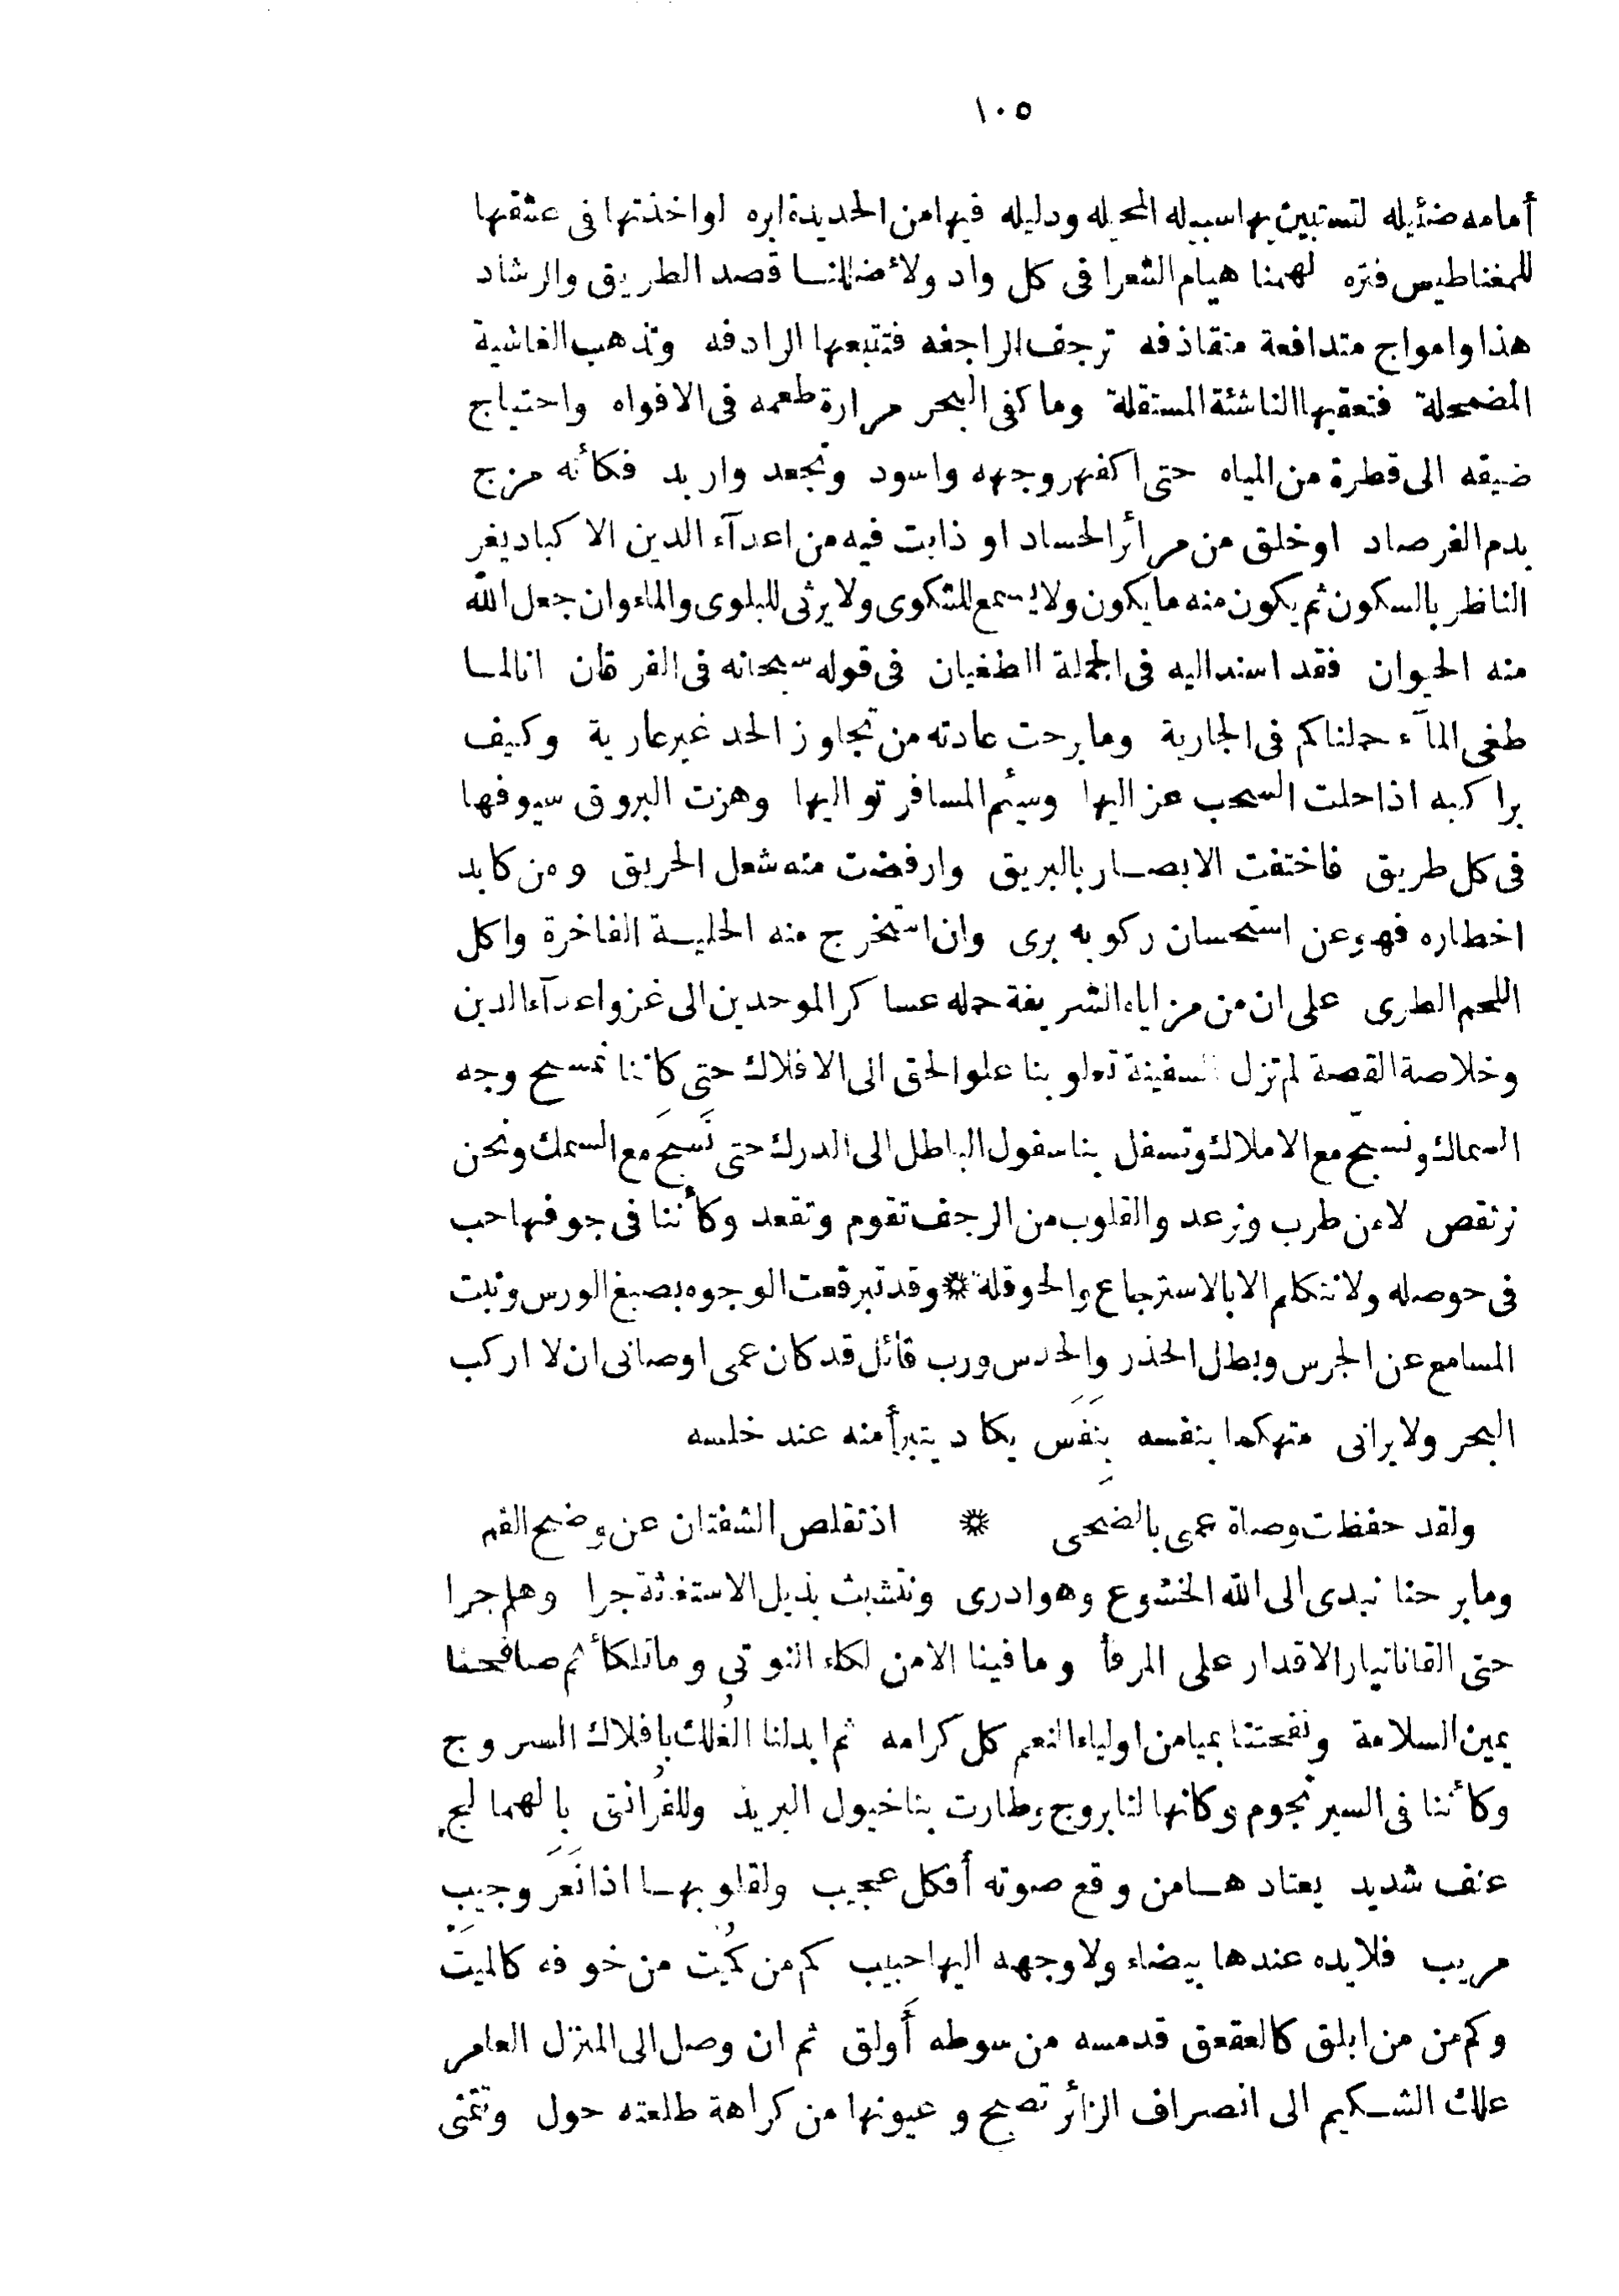 ١٠٥
أمامه ضئيله لتستبين بها سبيله المحيله ودليله فيها من الحديدة ابره لو اخذتها فى عشقها
للمغناطيس فتره لهمنا هيام الشعرا فى كل واد ولأضللنا قصد الطريق والرشاد
هذا وامواج متدافعة متقاذفه ترجف الراجفه فتتبعها الرادفه وتذهب الغاشية
المضمحلة فتعقبها الناشئة المستقلة وما كفى البحر مرارة طعمه فى الافواه واحتياج
ضيقه الى قطرة من المياه حتى اكفهر وجهه واسود وتجعد واربد فكأنه مزج
بدم الفرصاد اوخلق من مرائر الحساد او ذابت فيه من اعدآء الدين الاكباد يغر
الناظر بالسكون ثم يكون منه ما يكون ولا يسمع للشكوى ولا يرثى للبلوى والماء وان جعل الله
منه الحيوان فقد اسند اليه فى الجملة الطغيان فى قوله سبحانه فى الفرقان انا لمـا
طغى المآء حملناكم فى الجارية وما برحت عادته من تجاوز الحد غير عارية وكيف
براكبه اذا حلت السحب عزاليها وسئم المسافر تواليها وهزت البروق سيوفها
فى كل طريق فاختفت الابصـار بالبريق وارفضت منه شعل الحريق ومن كابد
اخطاره فهو عن استحسان ركوبه برى وان استخرج منه الحليـة الفاخرة واكل
اللحم الطرى على ان من مزاياه الشريفة حمله عساكر الموحدين الى غزو اعدآء الدين
وخلاصة القصة لم تزل السفينة تعلو بنا علو الحق الى الافلاك حتى كاننا نمسح وجه
السماك ونسبّح مع الاملاك وتسفل بنا سفول الباطل الى الدرك حتى نَسبَح مع السمك ونحن
نرتقص لا من طرب ونرعد والقلوب من الرجف تقوم وتقعد وكأننا فى جوفها حب
فى حوصله ولا نتكلم الا بالاسترجاع والحوقلة * وقد تبرقعت الوجوه بصبغ الورس ونبت
المسامع عن الجرس وبطل الحذر والحدس ورب قائل قد كان عمى اوصانى ان لا اركب
البحر ولا يرانى متهكما بنفسه بِنَفَس يكاد يتبرأ منه عند خلسه
ولقد حفظت وصاة عمى بالضحى * اذ تقلص الشفتان عن وضح الفم
وما برحنا نبدى الى الله الخشوع وهو ادرى ونتشبث بذيل الاستغاثة جرا وهلم جرا
حتى القانا تيار الاقدار على المرفأ وما فينا الا من لكاء النوتى وما تلكأ ثم صافحنا
يمين السلامة ونفحتنا بميامن اولياء النعم كل كرامه ثم ابدلنا الفُلك بافلاك السروج
وكأننا فى السير نجوم وكانها لنا بروج وطارت بنا خيول البريد وللفُرانق بالهماليج
عنف شديد يعتادهـا من وقع صوته أفكل عجيب ولقلوبهـا اذا نَعَر وجيب
مريب فلا يده عندها بيضاء ولا وجهه اليها حبيب كم من كُميْت من خوفه كالميّت
وكم من من ابلق كالعقعق قد مسه من سوطه أَولق ثم ان وصل الى المنزل العامر
علك الشـكيم الى انصراف الزائر تصبح وعيونها من كراهة طلعته حول وتتمنى